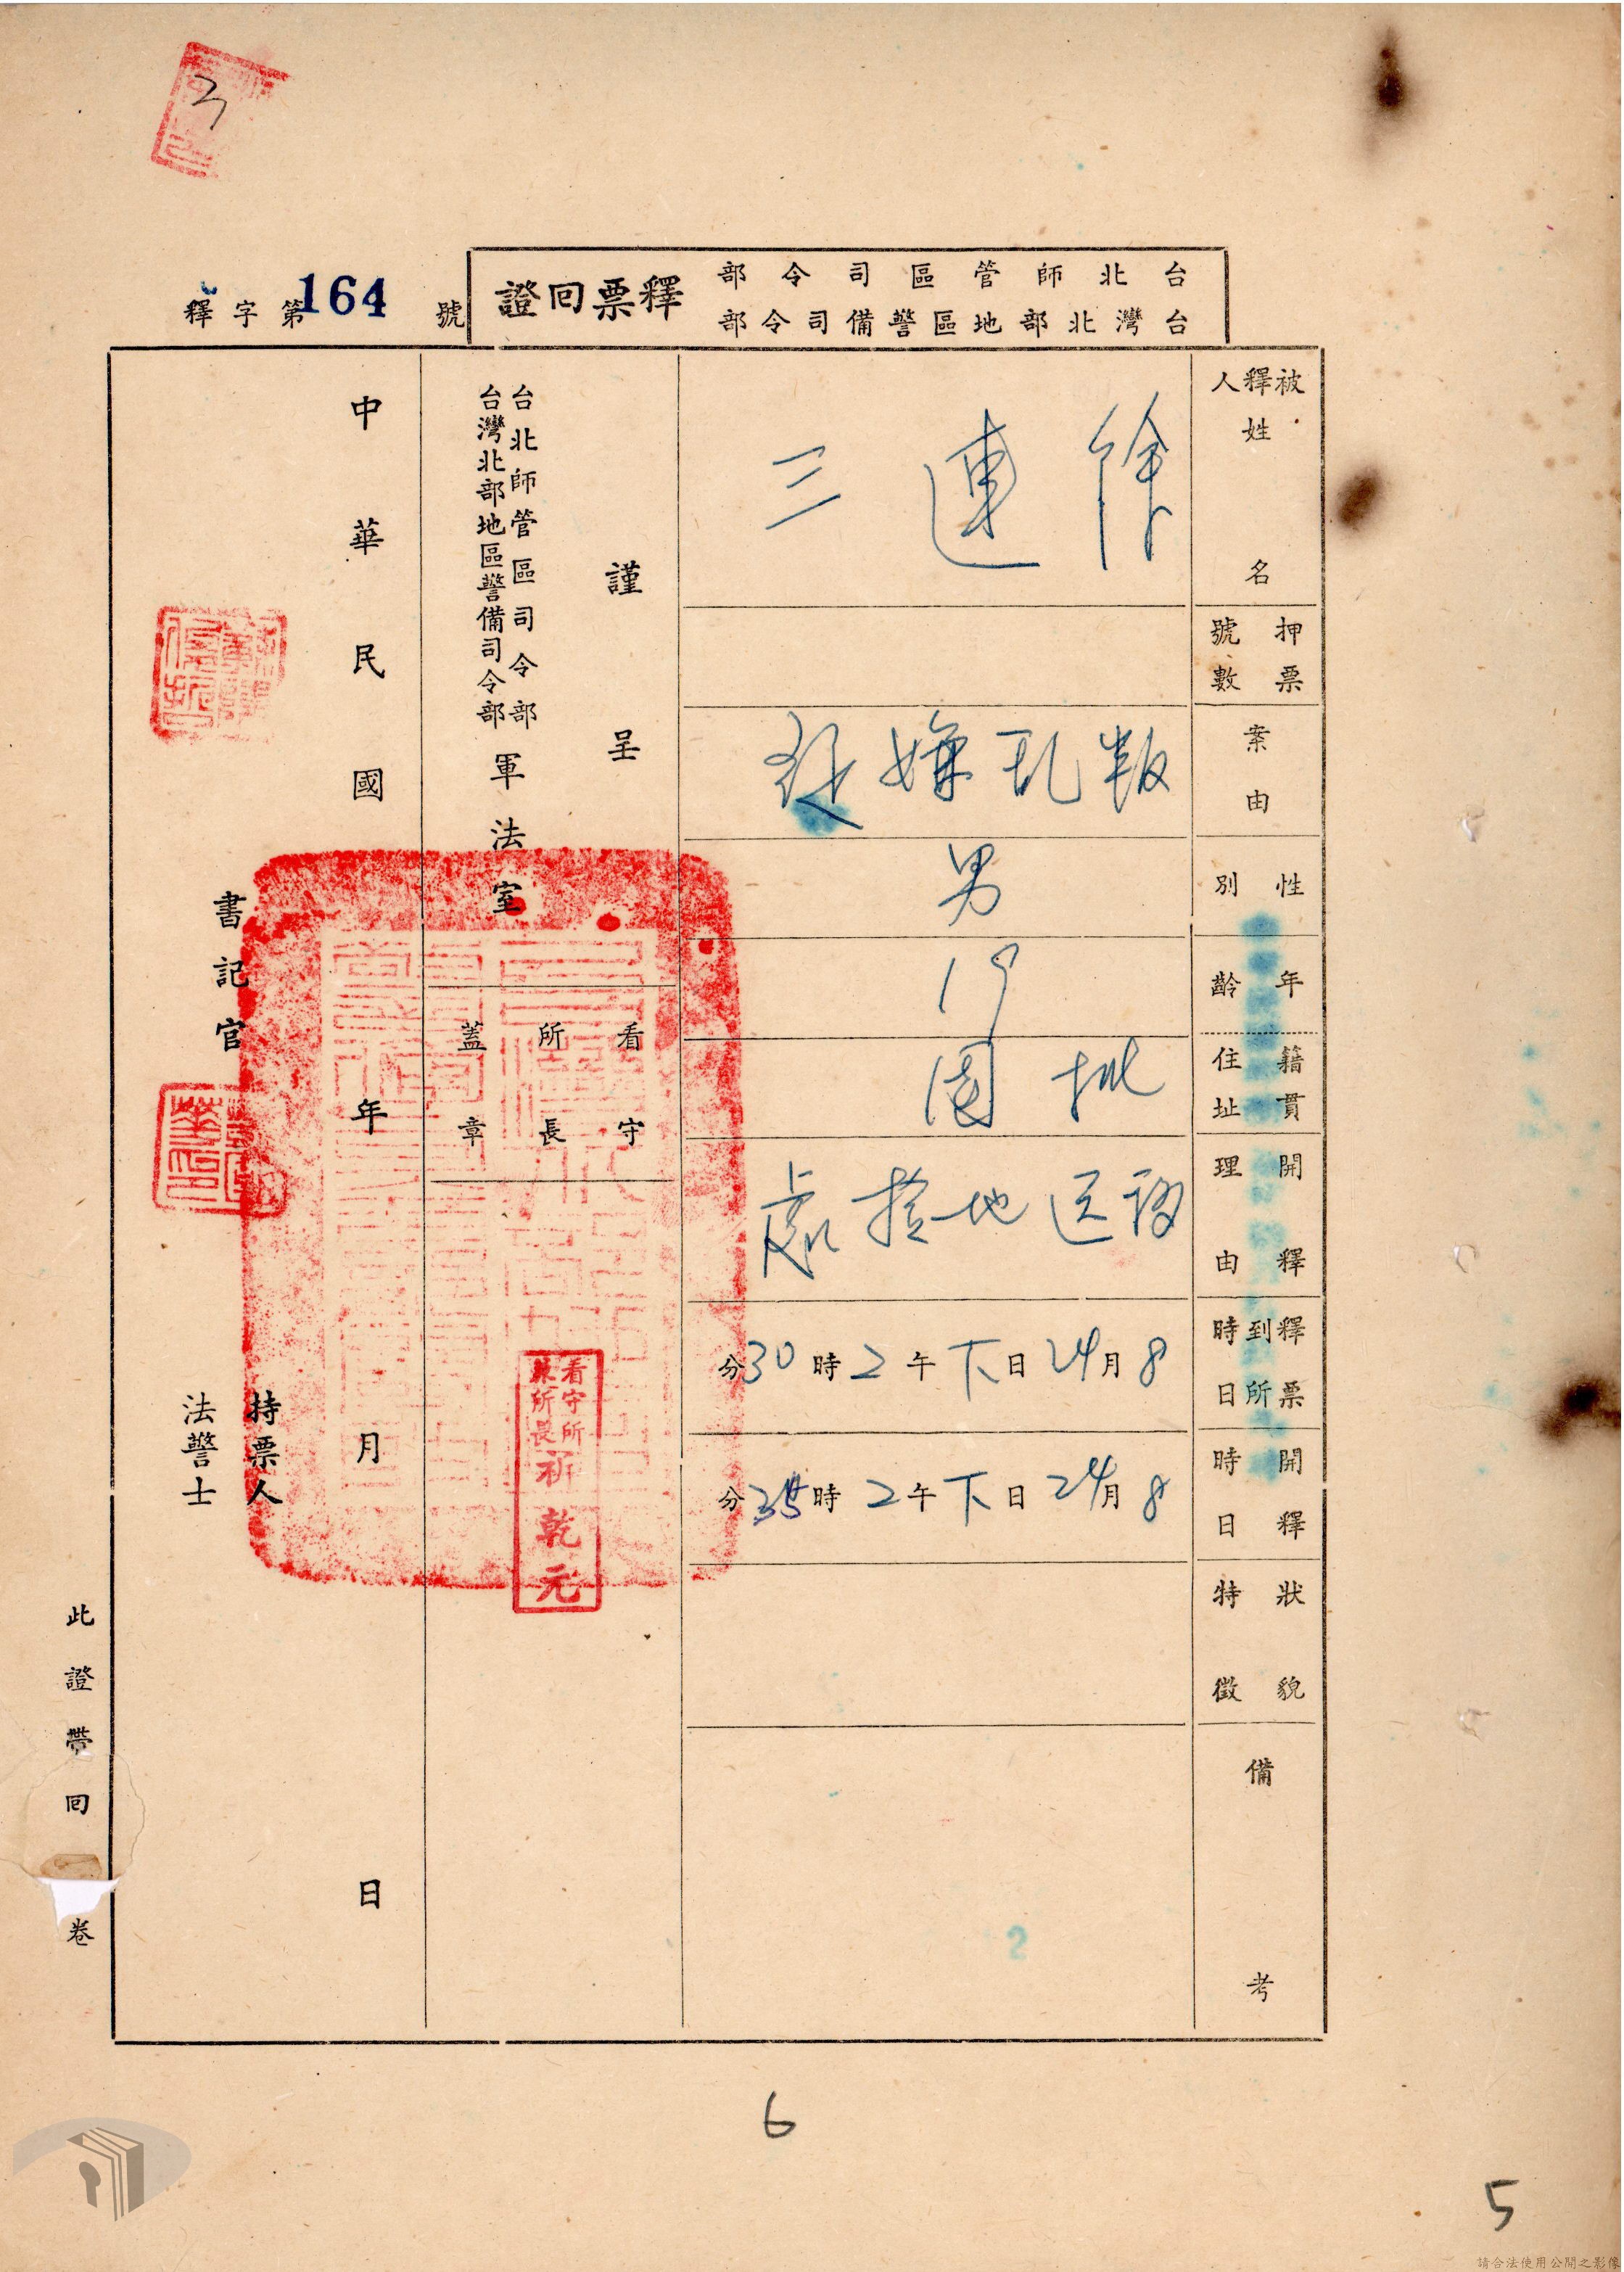 台北師管區司令部
台灣北部地區警備司令部
釋票回證
釋字第164號
被釋人姓名
徐連三
押票號數
案由
叛乱嫌疑
性別
男
年齡
19
籍貫住址
桃園
開釋理由
移送地檢處
釋票到所時日
8月24日下午2時30分
開釋時日
8月24日下午2時35分
狀貌特徵
備考
謹呈
台北師管區司令部
台灣北部地區警備司令部
軍法室
看守所長蓋章
看守所
所長
祈乾元
中華民國年月日
書記官
持票人
法警士
此證帶回卷
3
2
6
5
請合法使用公開之影像